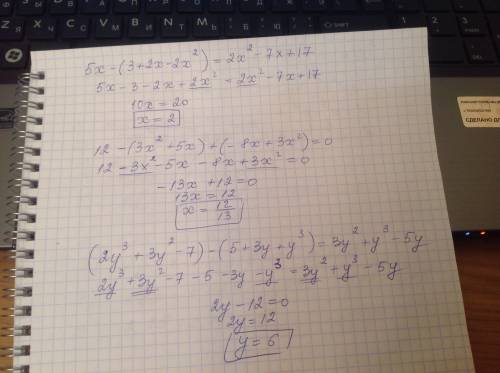 5x-(3+2x-2x²)=2x²-7x+17
5x-3-2x+2x²=2x²-7x+17
10x=20
x=2
12-(3x²+5x)+(-8x+3x²)=0
12-3x²-5x-8x+3x²=0
-13x+12=0
13x=12
x=12/13
(2y³+3y²-7)-(5+3y+y³)=3y²+y³-5y
2y³+3y²-7-5-3y-y³=3y²+y³-5y
2y-12=0
2y=12
y=6
СДЕЛАНО ДЛ